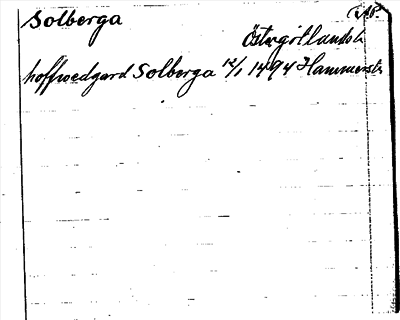 Solberga
Östergötlands l.
hoffwedgard Solberga 12/1 1494 Hammerst.